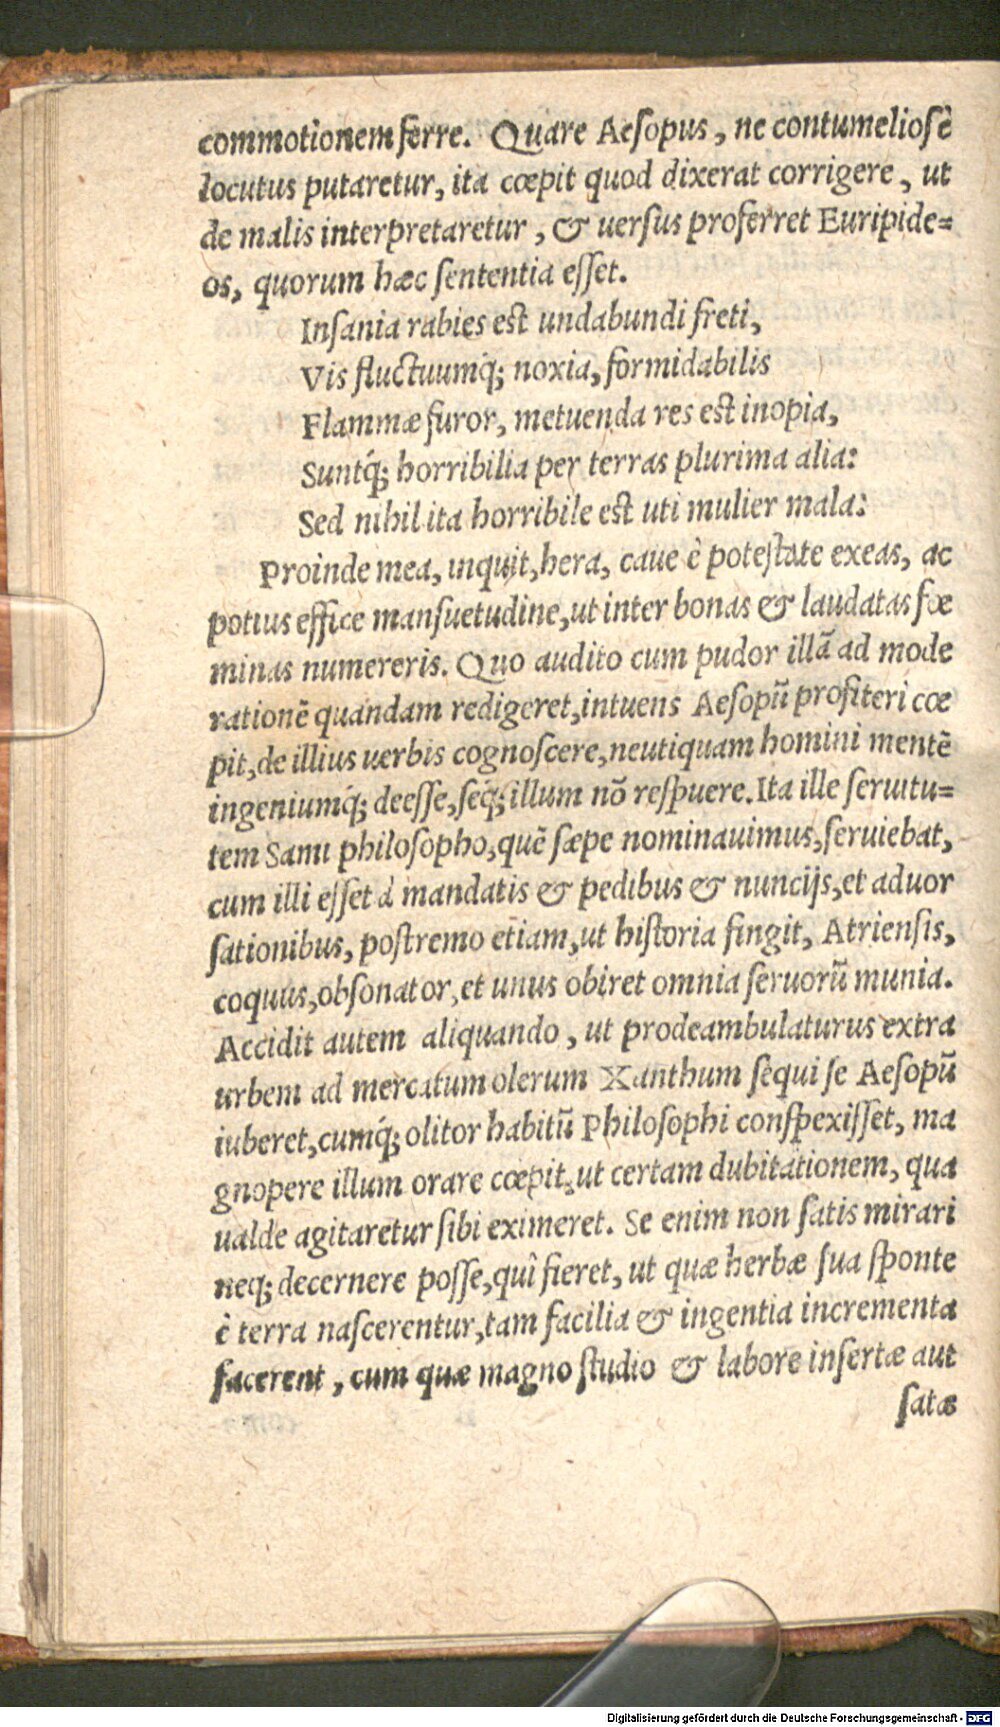 commotionem ferre. Quare Aesopus, ne contumeliosè
locutus putaretur, ita cœpit quod dixerat corrigere, ut
de malis interpretaretur, & uersus proferret Euripide=
os, quorum hæc sententia esset.
Insania rabies est undabundi freti,
Vis fluctuumq́; noxia, formidabilis
Flammæ furor, metuenda res est inopia,
Suntq́; horribilia per terras plurima alia:
Sed nihil ita horribile est uti mulier mala:
Proinde mea, inquit, hera, caue è potestate exeas, ac
potius effice mansuetudine, ut inter bonas & laudatas fœ
minas numereris. Quo audito cum pudor illā ad mode
rationē quandam redigeret, intuens Aesopū profiteri cœ
pit, de illius uerbis cognoscere, neutiquam homini mentē
ingeniumq́; deesse, seq́; illum nō respuere. Ita ille seruitu=
tem Samii philosopho, quē sæpe nominauimus, seruiebat,
cum illi esset à mandatis & pedibus & nuncijs, et aduor
sationibus, postremo etiam, ut historia fingit, Atriensis,
coquus, obsonator, et unus obiret omnia seruorū munia.
Accidit autem aliquando, ut prodeambulaturus extra
urbem ad mercatum olerum Xanthum sequi se Aesopū
iuberet, cumq́; olitor habitū Philosophi conspexisset, ma
gnopere illum orare cœpit, ut certam dubitationem, qua
ualde agitaretur sibi eximeret. Se enim non satis mirari
neq; decernere posse, quî fieret, ut quæ herbæ sua sponte
è terra nascerentur, tam facilia & ingentia incrementa
facerent, cum quæ magno studio & labore insertæ aut
satæ
Digitalisierung gefördert durch die Deutsche Forschungsgemeinschaft - DFG